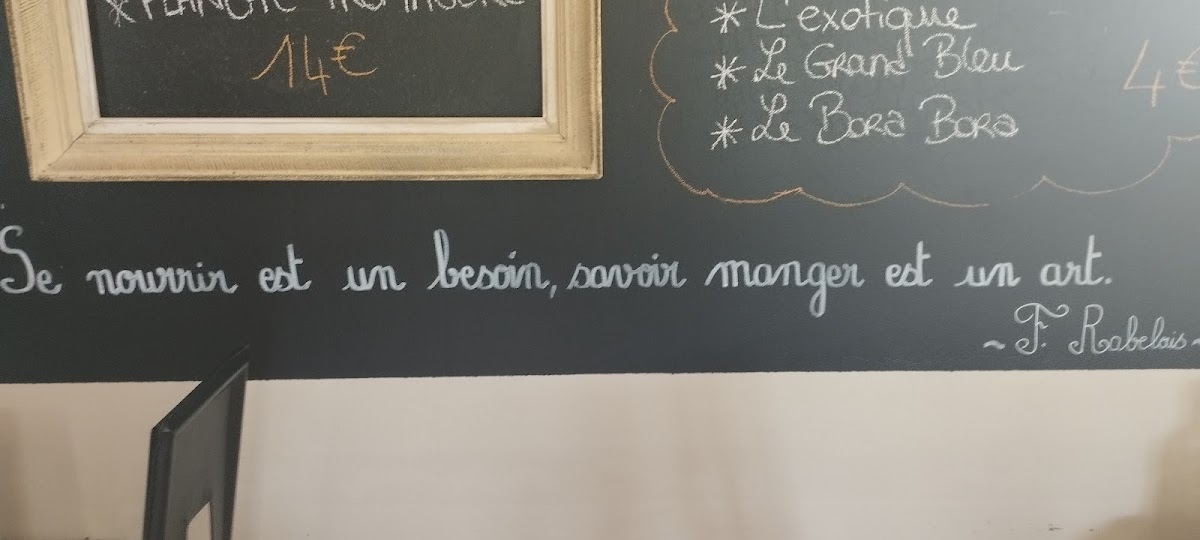 * PLANCHE
14€
* L'exotique
* Le Grand Bleu
* Le Bora Bora
4€
Se nourrir est un besoin, savoir manger est un art.
~ F. Rabelais ~